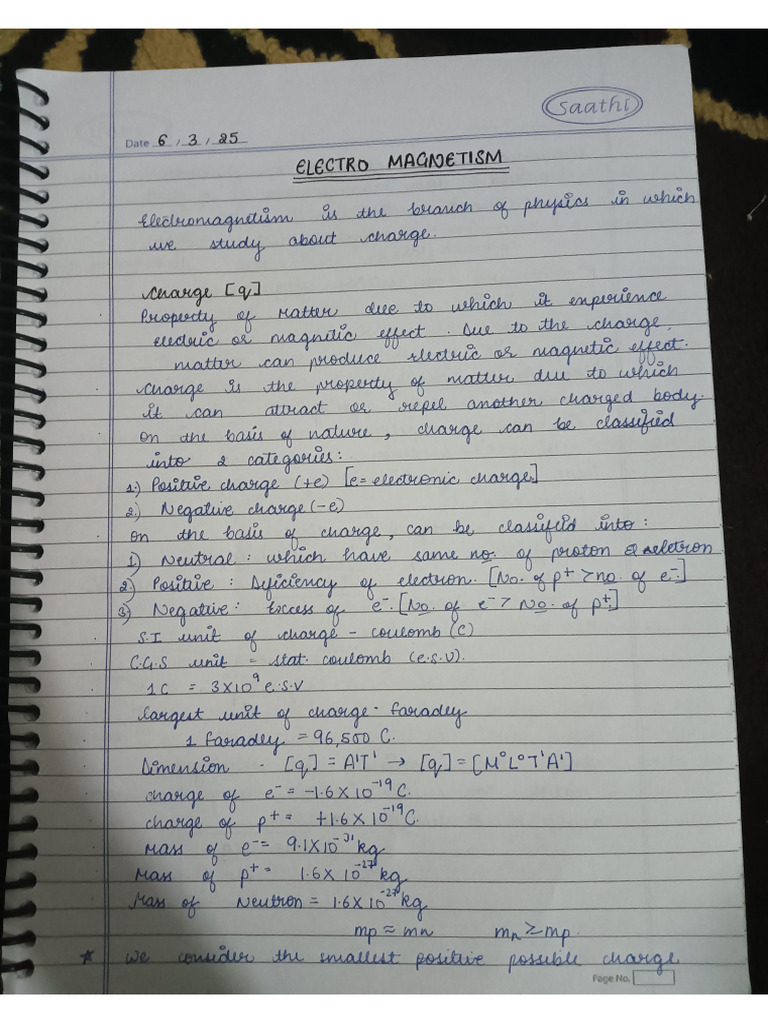 Saathi
Date 6 / 3 / 25
ELECTRO MAGNETISM
Electromagnetism is the branch of physics in which
we study about charge.
Charge [q]
Property of matter due to which it experience
electric or magnetic effect. Due to the charge,
matter can produce electric or magnetic effect.
Charge is the property of matter due to which
it can attract or repel another charged body.
On the basis of nature, charge can be classified
into 2 categories:
1.) Positive charge (+e) [e= electronic charge]
2.) Negative charge (-e)
On the basis of charge, can be classified into:
1) Neutral : which have same no. of proton & eletron
2) Positive : Deficiency of electron. [No. of p⁺ > no. of e⁻.]
3) Negative: Excess of e⁻. [No. of e⁻ > No. of p⁺.]
S.I unit of charge - coulomb (C)
C.G.S unit = stat. coulomb (e.s.v).
1 C = 3X10⁹ e.s.v
largest unit of charge - faradey
1 faradey = 96,500 C.
Dimension - [q] = A¹T¹ → [q] = [M⁰L⁰T¹A¹]
charge of e⁻ = -1.6 X 10⁻¹⁹ C.
charge of p⁺ = +1.6 X 10⁻¹⁹ C.
Mass of e⁻ = 9.1X10⁻³¹ kg
Mass of p⁺ = 1.6 X 10⁻²⁷ kg
Mass of Neutron = 1.6 X 10⁻²⁷ kg
mp ≈ mn mn ≥ mp.
* We consider the smallest positive possible charge
Page No.